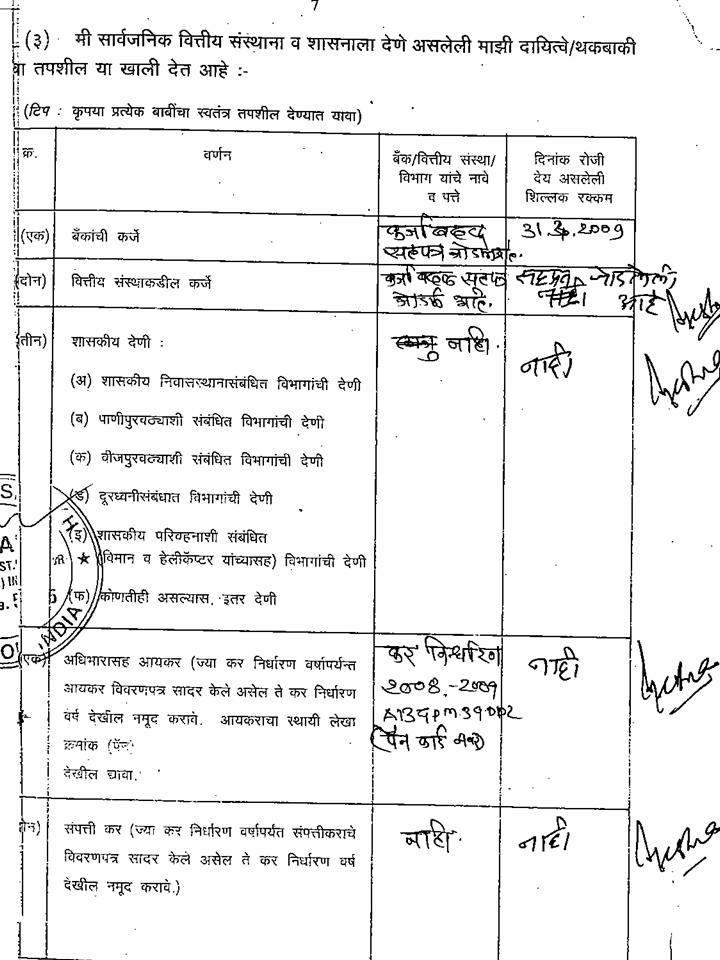 7
(३) मी सार्वजनिक वित्तीय संस्थाना व शासनाला देणे असलेली माझी दायित्वे/थकबाकी
चा तपशील या खाली देत आहे :-
(टिप : कृपया प्रत्येक बाबींचा स्वतंत्र तपशील देण्यात यावा)
क्र.
वर्णन
बँक/वित्तीय संस्था/
विभाग यांचे नावे
व पत्ते
दिनांक रोजी
देय असलेली
शिल्लक रक्कम
(एक) बँकांची कर्जे
कर्जाबद्दल
सहपत्र जोडले आहे.
31.3.2009
(दोन) वित्तीय संस्थाकडील कर्जे
कर्जाबद्दल सहपत्र
जोडले आहे.
सहपत्र जोडलेली
आहे
(तीन) शासकीय देणी :
नाही.
नाही
(अ) शासकीय निवासस्थानासंबंधित विभागांची देणी
(ब) पाणीपुरवठ्याशी संबंधित विभागांची देणी
(क) वीजपुरवठ्याशी संबंधित विभागांची देणी
(ड) दूरध्वनीसंबंधात विभागांची देणी
(इ) शासकीय परिवहनाशी संबंधित
(विमान व हेलीकॅप्टर यांच्यासह) विभागांची देणी
(फ) कोणतीही असल्यास, इतर देणी
INDIA
अधिभारासह आयकर (ज्या कर निर्धारण वर्षापर्यन्त
आयकर विवरणपत्र सादर केले असेल ते कर निर्धारण
वर्ष देखील नमूद करावे. आयकराचा स्थायी लेखा
क्रमांक (पॅन)
देखील द्यावा.
कर निर्धारण
2008-2009
(पॅन कार्ड नंबर)
नाही
संपत्ती कर (ज्या कर निर्धारण वर्षापर्यंत संपत्तीकराचे
विवरणपत्र सादर केले असेल ते कर निर्धारण वर्ष
देखील नमूद करावे.)
नाही.
नाही